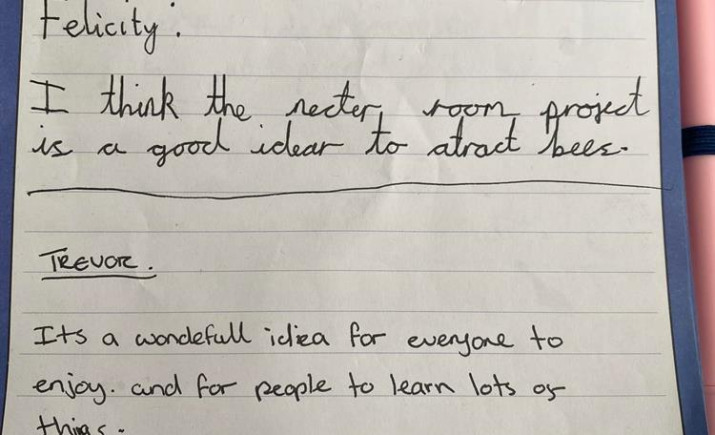 Felicity.
I think the necter room project
is a good idear to atract bees.
TREVOR.
Its a wondefull idiea for everyone to
enjoy. and for people to learn lots of
things.